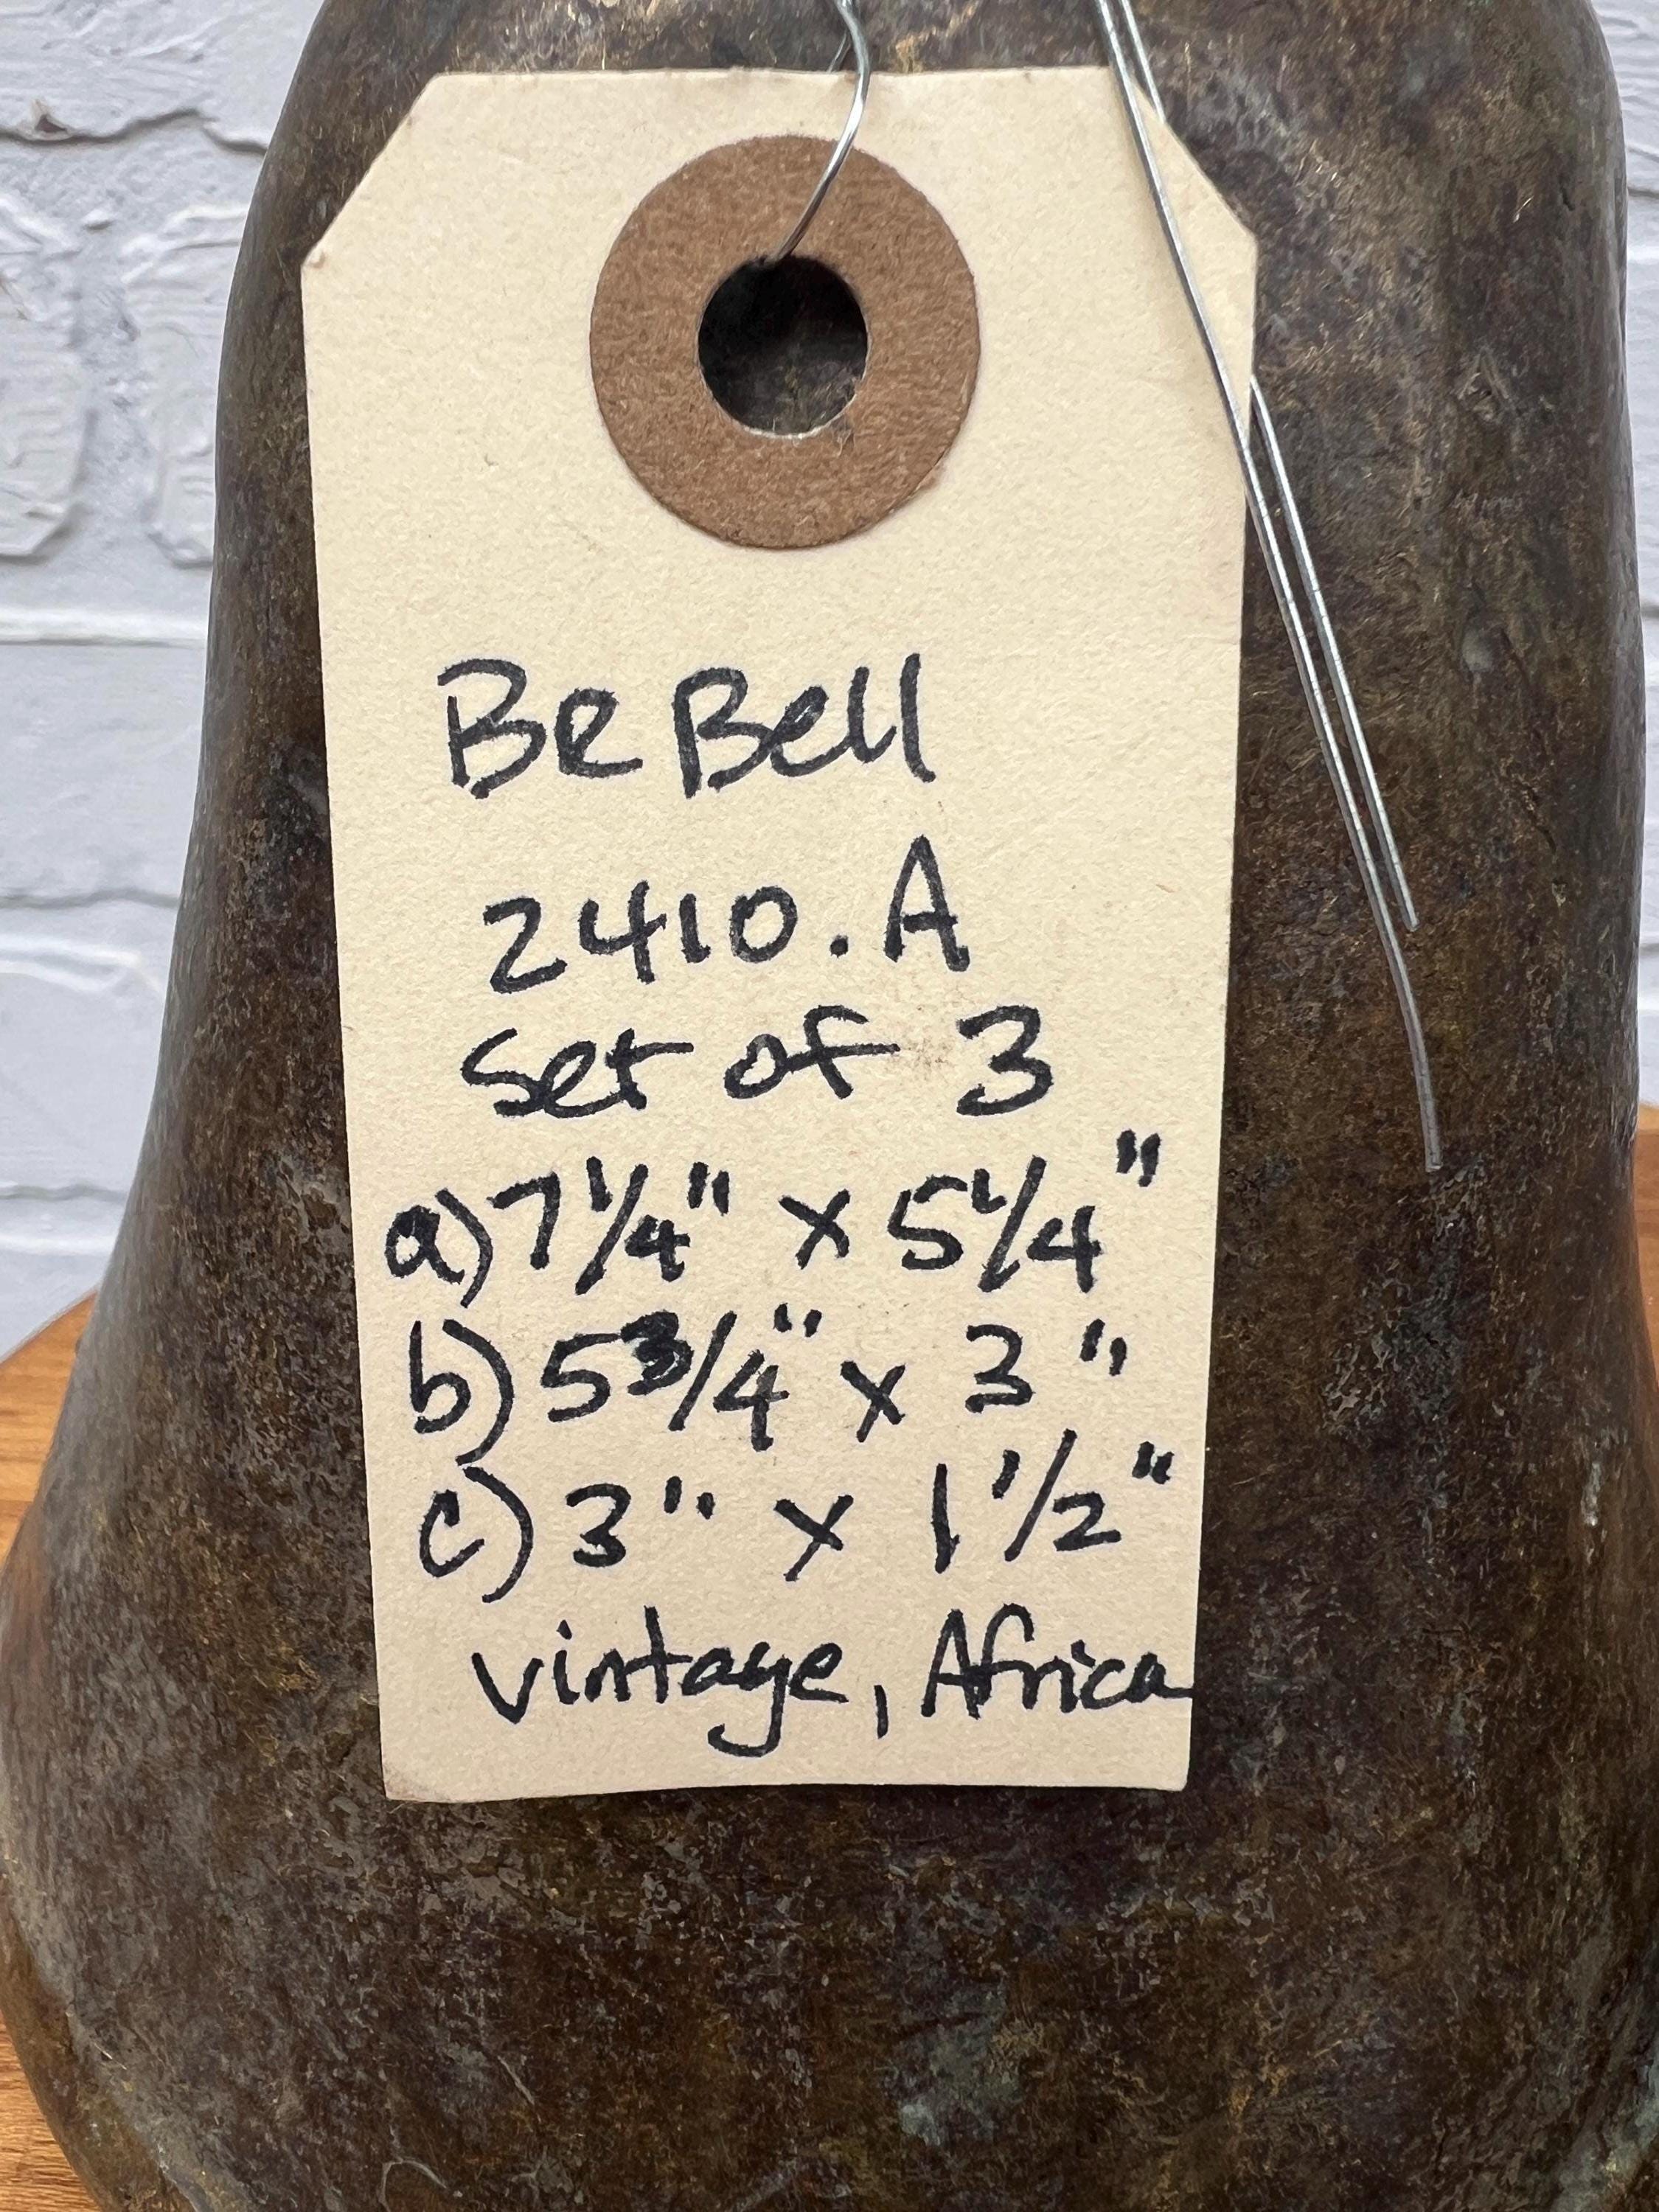 Br Bell
2410.A
set of 3
a) 7 1/4" x 5 1/4"
b) 5 3/4" x 3"
c) 3" x 1 1/2"
vintage, Africa